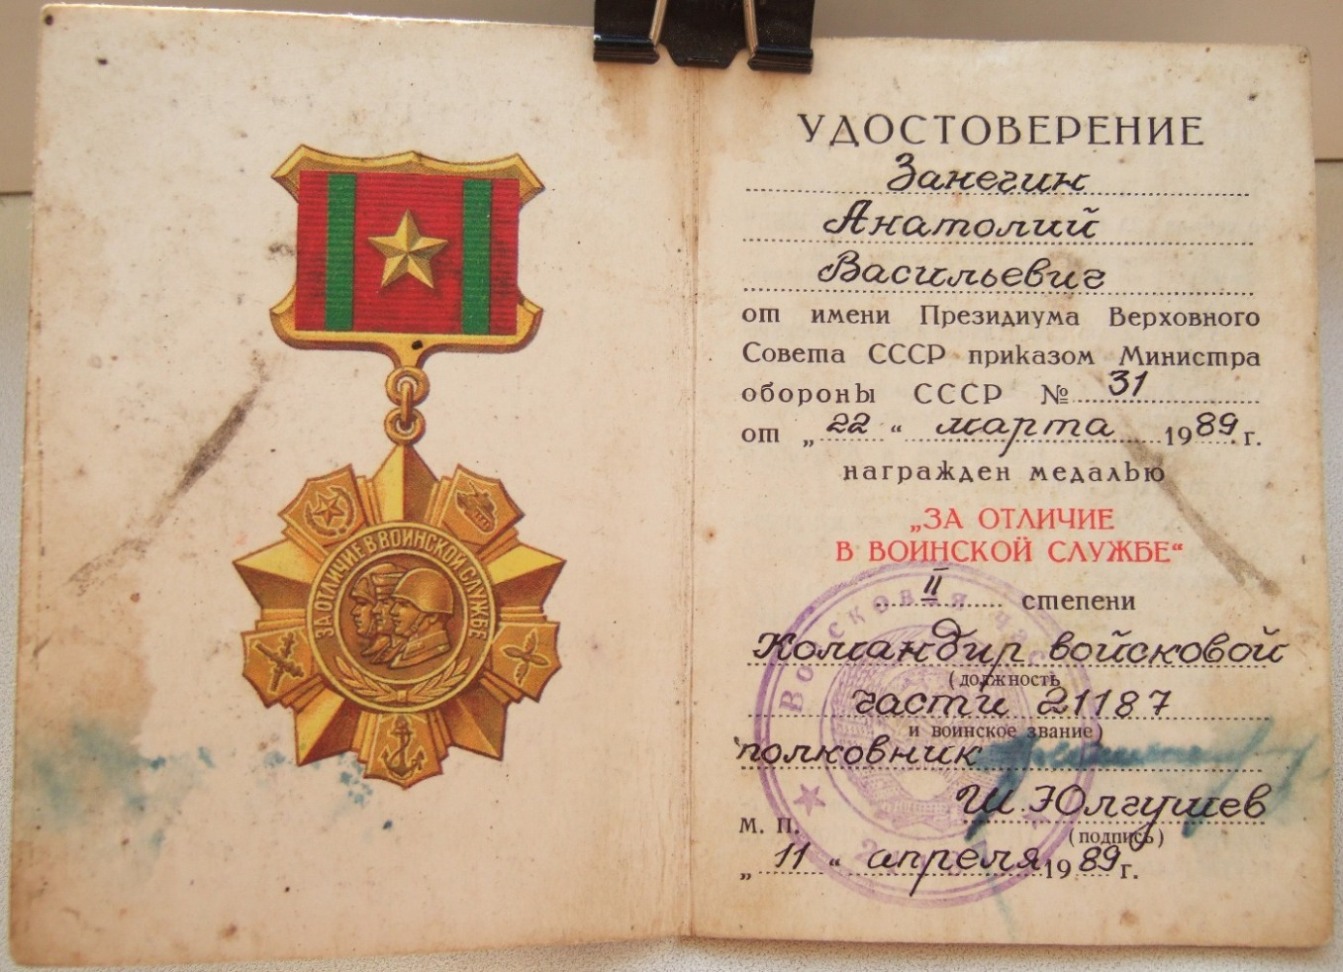 ЗА ОТЛИЧИЕ В ВОИНСКОЙ СЛУЖБЕ
УДОСТОВЕРЕНИЕ
Занегин
Анатолий
Васильевич
от имени Президиума Верховного
Совета СССР приказом Министра
обороны СССР № 31
от „22“ марта 1989 г.
награжден медалью
„ЗА ОТЛИЧИЕ
В ВОИНСКОЙ СЛУЖБЕ“
II степени
Командир войсковой
(должность
части 21187
и воинское звание)
полковник
Ш. Юлгушев
М. П. (подпись)
„11“ апреля 1989 г.
Войсковая част